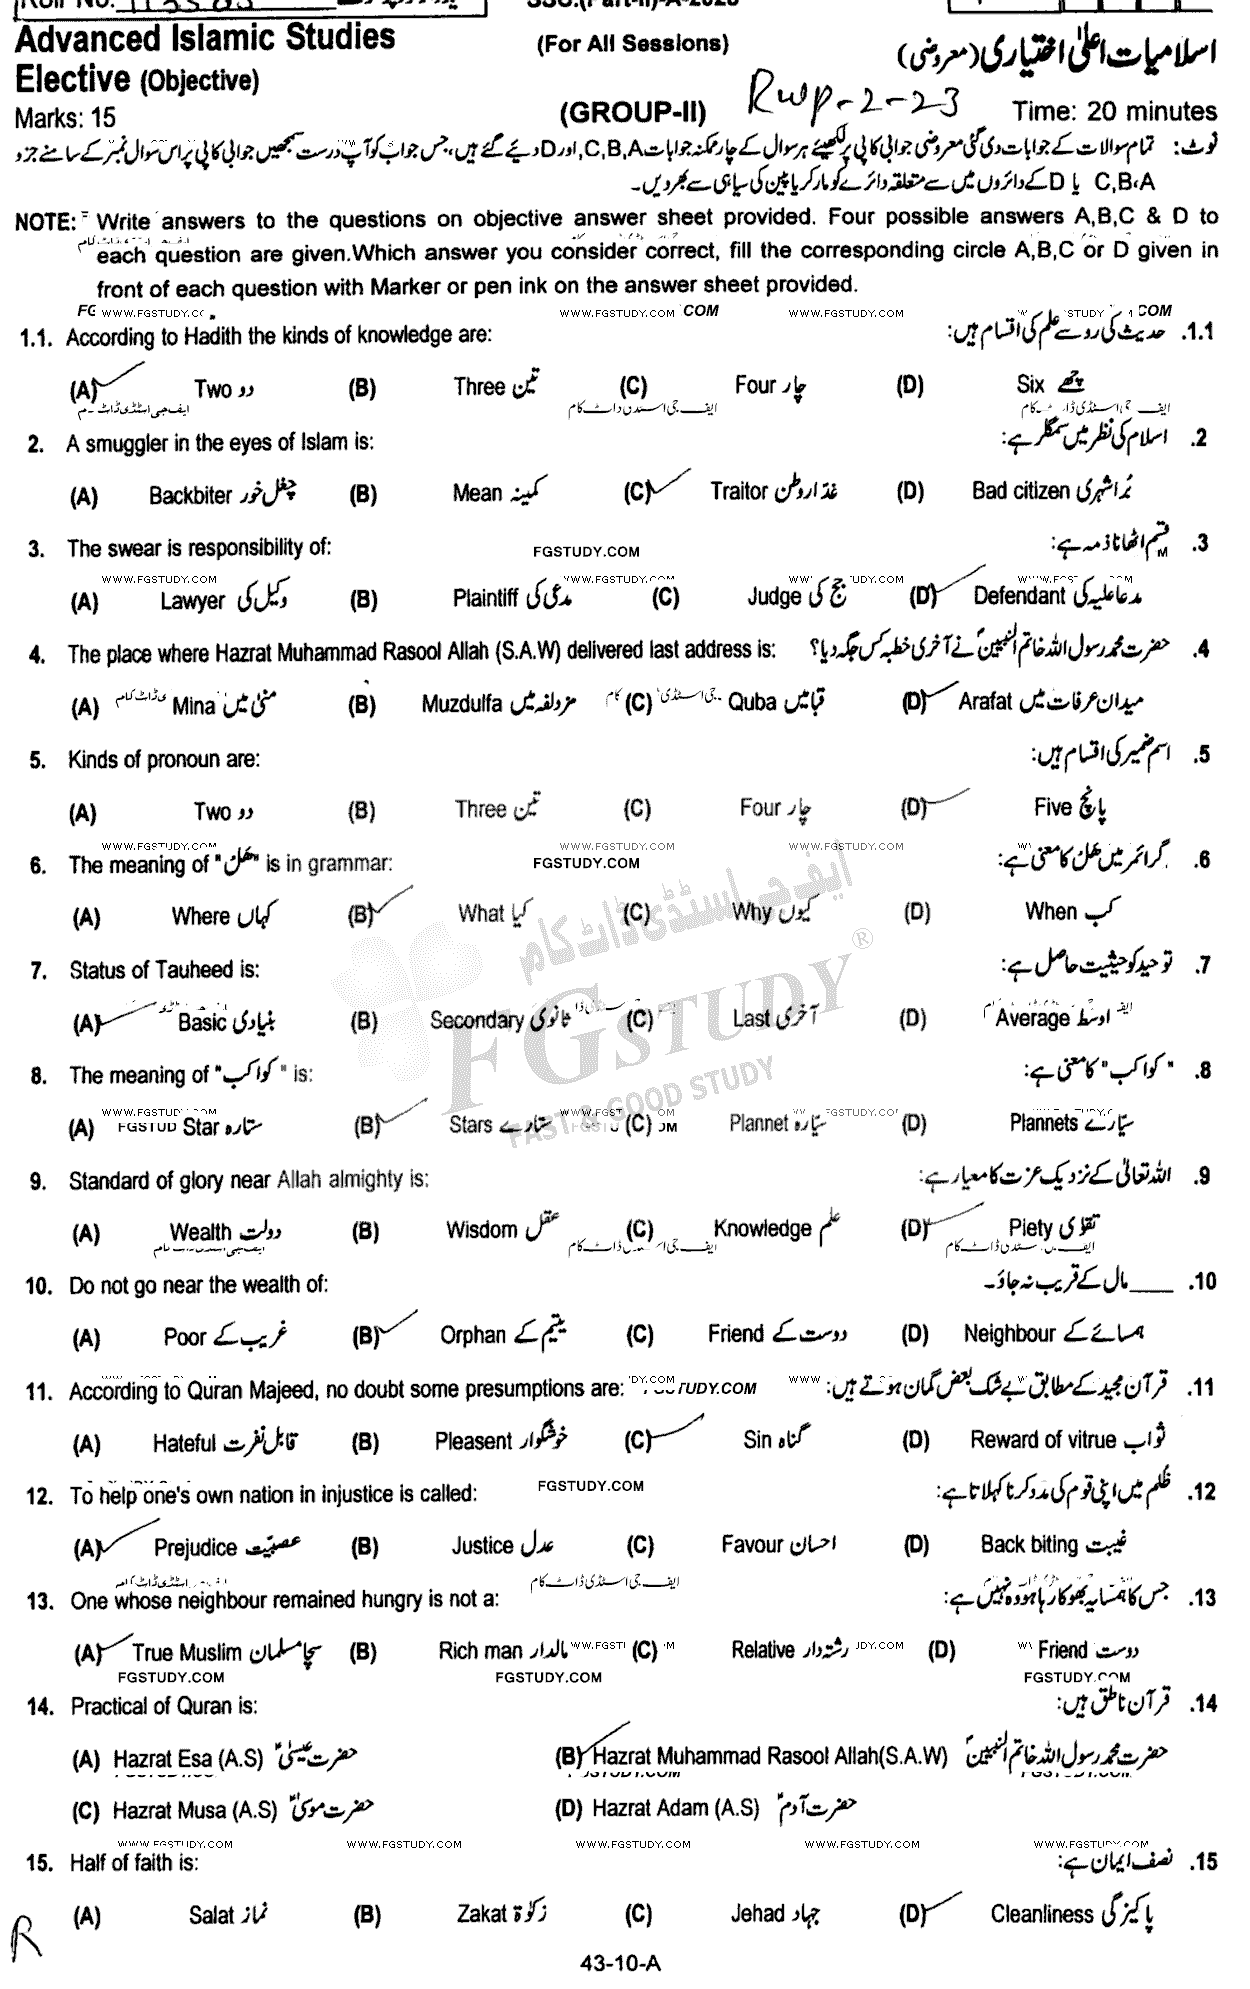 Advanced Islamic Studies (For All Sessions) اسلامیات اعلیٰ اختیاری (معروضی)
Elective (Objective)
Marks: 15 (GROUP-II) RWP-2-23 Time: 20 minutes
نوٹ: تمام سوالات کے جوابات دی گئی معروضی جوابی کاپی پر لکھیئے ہر سوال کے چار ممکنہ جوابات C,B,A اور D دیئے گئے ہیں، جس جواب کو آپ درست سمجھیں جوابی کاپی پر اس سوال نمبر کے سامنے جزو
C,B,A یا D کے دائروں میں سے متعلقہ دائرے کو مارکر یا پین کی سیاہی سے بھر دیں۔
NOTE: Write answers to the questions on objective answer sheet provided. Four possible answers A,B,C & D to
each question are given.Which answer you consider correct, fill the corresponding circle A,B,C or D given in
front of each question with Marker or pen ink on the answer sheet provided.
WWW.FGSTUDY.COM WWW.FGSTUDY.COM
1.1. According to Hadith the kinds of knowledge are: حدیث کی رو سے علم کی اقسام ہیں: .1.1
(A) Two دو (B) Three تین (C) Four چار (D) Six چھے
2. A smuggler in the eyes of Islam is: اسلام کی نظر میں سمگلر ہے: .2
(A) Backbiter چغل خور (B) Mean کمینہ (C) Traitor غدار وطن (D) Bad citizen بُرا شہری
3. The swear is responsibility of: FGSTUDY.COM قسم اٹھانا ذمہ ہے: .3
(A) Lawyer وکیل کی (B) Plaintiff مدعی کی (C) Judge جج کی (D) Defendant مدعا علیہ کی
4. The place where Hazrat Muhammad Rasool Allah (S.A.W) delivered last address is: حضرت محمد رسول اللہ خاتم النبیینؐ نے آخری خطبہ کس جگہ دیا؟ .4
(A) Mina منیٰ میں (B) Muzdulfa مزدلفہ میں (C) Quba قبا میں (D) Arafat میدان عرفات میں
5. Kinds of pronoun are: اسم ضمیر کی اقسام ہیں: .5
(A) Two دو (B) Three تین (C) Four چار (D) Five پانچ
6. The meaning of "ھَل" is in grammar: FGSTUDY.COM گرائمر میں ھَل کا معنی ہے: .6
(A) Where کہاں (B) What کیا (C) Why کیوں (D) When کب
ایف جی اسٹڈی ڈاٹ کام
7. Status of Tauheed is: توحید کو حیثیت حاصل ہے: .7
(A) Basic بنیادی (B) Secondary ثانوی (C) Last آخری (D) Average اوسط
FGSTUDY ®
FAST & GOOD STUDY
8. The meaning of "کواکب" is: "کواکب" کا معنی ہے: .8
(A) Star ستارہ (B) Stars ستارے (C) Plannet سیّارہ (D) Plannets سیّارے
9. Standard of glory near Allah almighty is: اللہ تعالیٰ کے نزدیک عزت کا معیار ہے: .9
(A) Wealth دولت (B) Wisdom عقل (C) Knowledge علم (D) Piety تقوٰی
10. Do not go near the wealth of: ____ مال کے قریب نہ جاؤ۔ .10
(A) Poor غریب کے (B) Orphan یتیم کے (C) Friend دوست کے (D) Neighbour ہمسائے کے
11. According to Quran Majeed, no doubt some presumptions are: قرآن مجید کے مطابق بے شک بعض گمان ہوتے ہیں: .11
(A) Hateful قابل نفرت (B) Pleasent خوشگوار (C) Sin گناہ (D) Reward of vitrue ثواب
12. To help one's own nation in injustice is called: FGSTUDY.COM ظلم میں اپنی قوم کی مدد کرنا کہلاتا ہے: .12
(A) Prejudice عصبیّت (B) Justice عدل (C) Favour احسان (D) Back biting غیبت
13. One whose neighbour remained hungry is not a: ایف جی اسٹڈی ڈاٹ کام جس کا ہمسایہ بھوکا رہا ہو وہ نہیں ہے: .13
(A) True Muslim سچا مسلمان (B) Rich man مالدار (C) Relative رشتہ دار (D) Friend دوست
FGSTUDY.COM FGSTUDY.COM FGSTUDY.COM
14. Practical of Quran is: قرآن ناطق ہیں: .14
(A) Hazrat Esa (A.S) حضرت عیسیٰؑ (B) Hazrat Muhammad Rasool Allah(S.A.W) حضرت محمد رسول اللہ خاتم النبیینؐ
(C) Hazrat Musa (A.S) حضرت موسیٰؑ (D) Hazrat Adam (A.S) حضرت آدمؑ
WWW.FGSTUDY.COM WWW.FGSTUDY.COM WWW.FGSTUDY.COM WWW.FGSTUDY.COM WWW.FGSTUDY.COM
15. Half of faith is: نصف ایمان ہے: .15
(A) Salat نماز (B) Zakat زکوٰۃ (C) Jehad جہاد (D) Cleanliness پاکیزگی
R
43-10-A